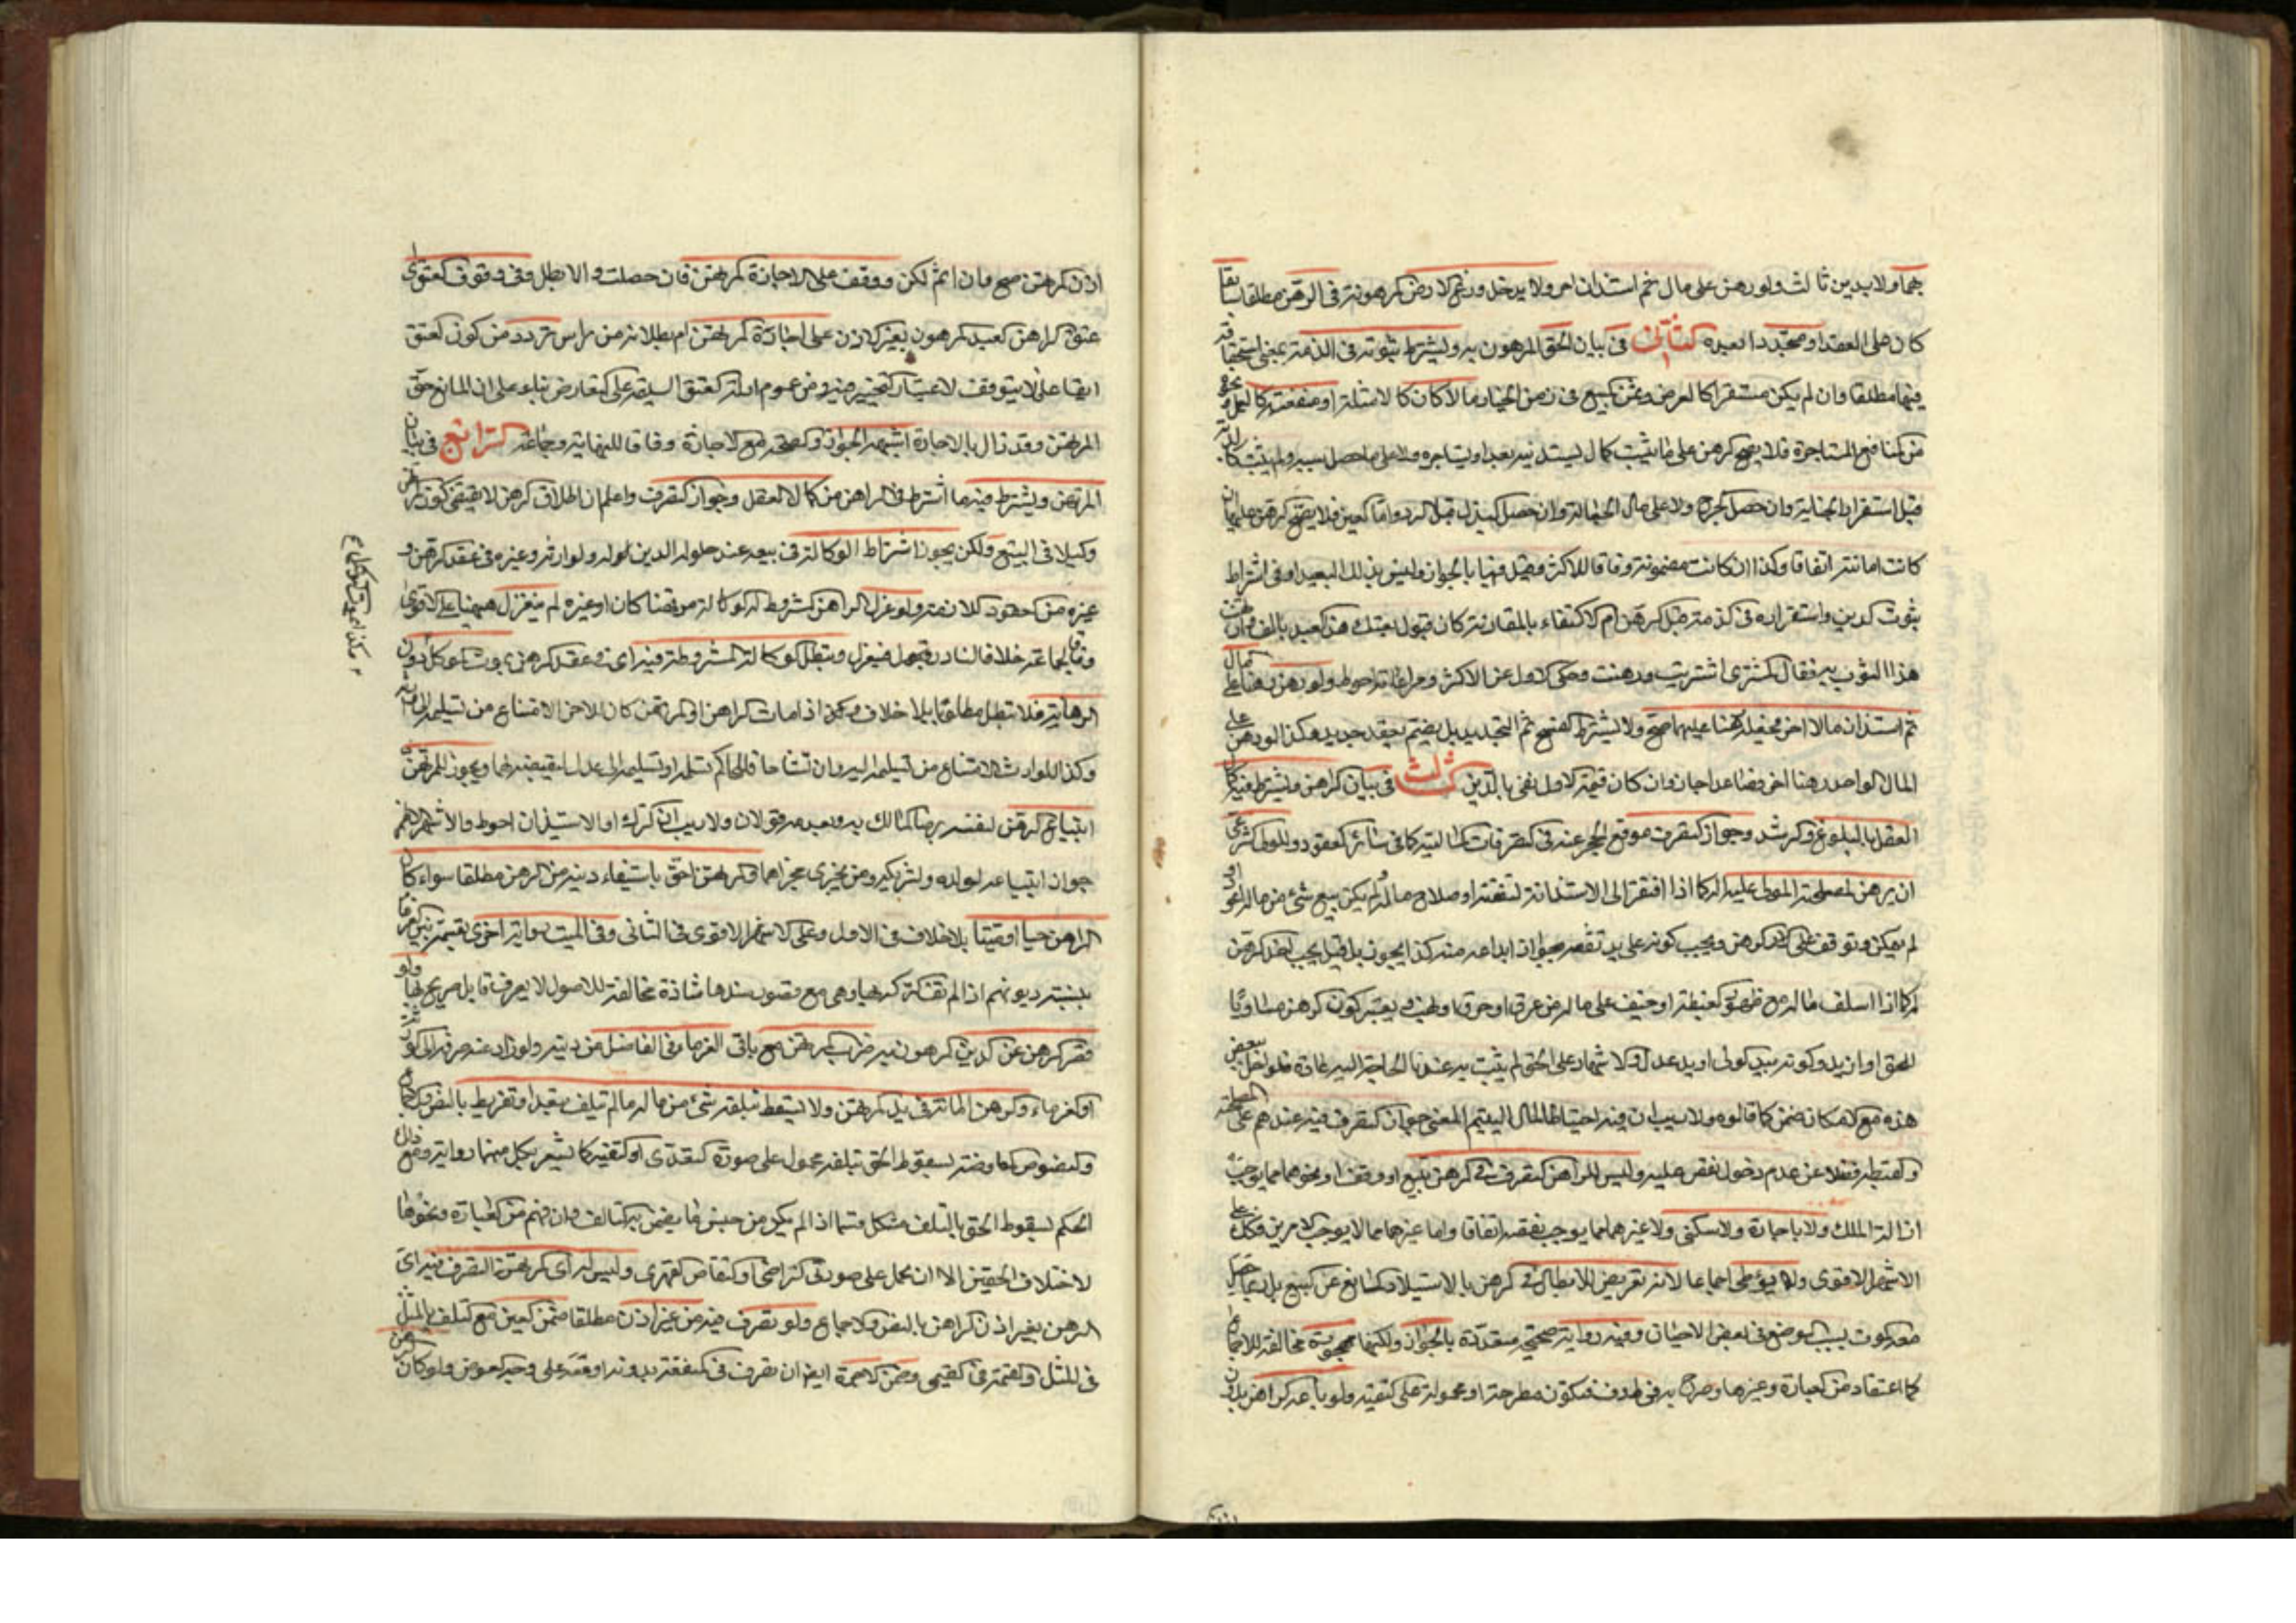 بهما ولا بدين ثالث ولو رهن على مال ثم استدان اخر ولا يدخل زرع الارض المرهونة في الرهن مطلقا سابقا
كان على العقد او متجددا بعده الثاني في بيان الحق المرهون به ويشترط ثبوته في الذمة بمعنى استحقاقه
فيها مطلقا وان لم يكن مستقرا كالقرض وثمن المبيع في زمن الخيار مالا كان كالامثلة او منفعة كالعمل
من المنافع المستاجرة فلا يصح الرهن على ما يثبت كمال يستدينه بعد او يستاجره ولا على ما حصل سببه ولم يثبت كالدية
قبل استقرار الجناية وان حصل الجرح ولا على مال الجعالة وان حصل البذل قبل الرد واما العين فلا يصح الرهن عليها ان
كانت امانة اتفاقا وكذا ان كانت مضمونة وفاقا للاكثر وقيل فيها بالجواز وليس بذلك البعيد وفي اشتراط
ثبوت الدين واستقراره في الذمة قبل الرهن ام الاكتفاء بالمقارنة كان يقول بعتك هذا العبد بالف ورهنت
هذا الثوب به فقال المشتري اشتريت ورهنت وحكي الاول عن الاكثر ومراعاته احوط ولو رهن رهنا على مال
ثم استدان مالا اخر فجعل الرهن عليهما صح ولا يشترط الفسخ ثم التجديد بل يضم بعقد جديد وهكذا لو رهن على
المال الواحد رهنا اخر فصاعدا جاز وان كان قيمة الاول تفي بالدين الثالث في بيان الراهن ويشترط فيه كمال
العقل بالبلوغ والرشد وجواز التصرف موقع الحجر عنه في التصرفات المالية كما في سائر العقود وللولي
ان يرهن لمصلحة المولى عليه كما اذا افتقر الى الاستدانة لنفقته او صلاح ماله ولم يكن بيع شيء من ماله اعود او
لم يمكن وتوقف على الرهن ويجب كونه على يد ثقة يجوز ايداعه منه كذا يجوز بل قيل يجب اخذ الرهن
له كما اذا اسلف ماله مع ظهور الغبطة او خيف على ماله من غرق او حرق او نهب ويعتبر كون الرهن مساويا
للحق او ازيد وكونه بيد الولي او يد عدل والاشهاد على الحق لم يثبت به عند الحاجة اليه عادة فلو اخل ببعض
هذه مع الامكان ضمن كما قالوه ولا ريب ان فيه احتياطا لمال اليتيم المعني جواز التصرف فيه عندهم على المصلحة
والغبطة فضلا عن عدم دخول نقص عليه وليس للراهن التصرف في الرهن ببيع او وقف او نحوهما مما يوجب
ازالة الملك ولا باجارة ولا سكنى ولا غيرهما مما يوجب نقصه اتفاقا واما غيرهما مما لا يوجب الامرين فكل على
الاشهر الاقوى ولا يوطي اجماعا لانه تعريض للابطال في الرهن بالاستيلاد المانع عن البيع بل ربما حصل
معه الموت بسبب الوضع في بعض الاحيان وفيه رواية صحيحة متعددة بالجواز ولكنها مهجورة مخالفة للاجماع
كما اعتقاد من العبارة وغيرها وصرح به في فتكون مطرحة او محمولة على التقية ولو باعه الراهن بدون
اذن المرتهن صح وان اثم لكن ووقف على الاجازة المرتهن فان حصلت والا بطل وفي وقوف العتق اي
عتق الراهن العبد المرهون بغير الاذن على اجازة المرتهن ام بطلانه من راس تردد من كون العتق
ايقاعا لا يتوقف لاعتبار التنجيز فيه ومن عموم ادلة العتق السليمة على التعارض بناء على ان المانع حق
المرتهن وقد زال بالاجازة اشبهه الجواز والصحة مع الاجازة وفاقا للنهاية وجماعة الرابع في بيان
المرتهن ويشترط فيه ما اشترط في الراهن من كمال العقل وجواز التصرف واعلم ان اطلاق الرهن لا يقتضي كون المرتهن
وكيلا في البيع ولكن يجوز اشتراط الوكالة في بيعه عند حلول الدين له ولوارثه وغيره في عقد الرهن و
غيره من العقود اللازمة ولو عزل الراهن المشروط له الوكالة مرتهنا كان او غيره لم ينعزل هيهنا على الاقوى
وفاقا لجماعة خلافا لنادر فجعله فينعزل وتبطل الوكالة المشروطة فيه اي في عقد الرهن بموت الموكل دون
الرهانة فلا تبطل مطلقا بلا خلاف وكذا اذا مات الراهن او المرتهن كان للاخر الامتناع من تسليمه الى وارثه
وكذا للوارث الامتناع من تسليمه اليه وان تشاحا فللحاكم تسلمه او تسليمه الى عدل ليقبضه لهما ويجوز للمرتهن
ابتياع الرهن لنفسه برضا المالك به وبعدمه قولان ولا ريب ان الترك او الاستيذان احوط والاشهر الاظهر
جواز ابتياعه لولده ولشريكه ومن يجري مجراهما والمرتهن احق باستيفاء دينه من الرهن مطلقا سواء كان
الراهن حيا او ميتا بلا خلاف في الاول وعلى الاشهر الاقوى في الثاني وفي الميت رواية اخرى بقسمته بين الغرماء
بنسبة ديونهم اذا لم تف تركته بها وهي مع قصور سندها شاذة مخالفة للاصول لا يعرف قايل صريح بها ولو
قصر الرهن عن الدين المرهون به ضرب المرتهن مع باقي الغرماء في الفاضل من دينه ولو زاد عنه صرف الى الورثة
او الغرماء والرهن امانة في يد المرتهن ولا يسقط بتلفه شيء من ماله ما لم يتلف بتعد او تفريط بالنص والاجماع
والنصوص المعارضة بسقوط الحق بتلفه محمول على صورة التعدي او التقية كما يشعر بكل منهما رواية ومع ذلك
الحكم لسقوط الحق بالتلف مشكل فيما اذا لم يكن من جنس ما يضمن به التالف وان فهم من العبارة ونحوها
لاختلاف الحقين الا ان يحمل على صورتي التراضي او التقاص القهري وليس له اي المرتهن التصرف فيه اي
الرهن بغير اذن الراهن بالنص والاجماع ولو تصرف فيه من غير اذن مطلقا ضمن العين مع التلف بالمثل
في المثلي والقيمة في القيمي وضمن الاجرة ايضا ان تصرف في المنفعة بدونه او معه على وجه العوض ولو كان الرهن